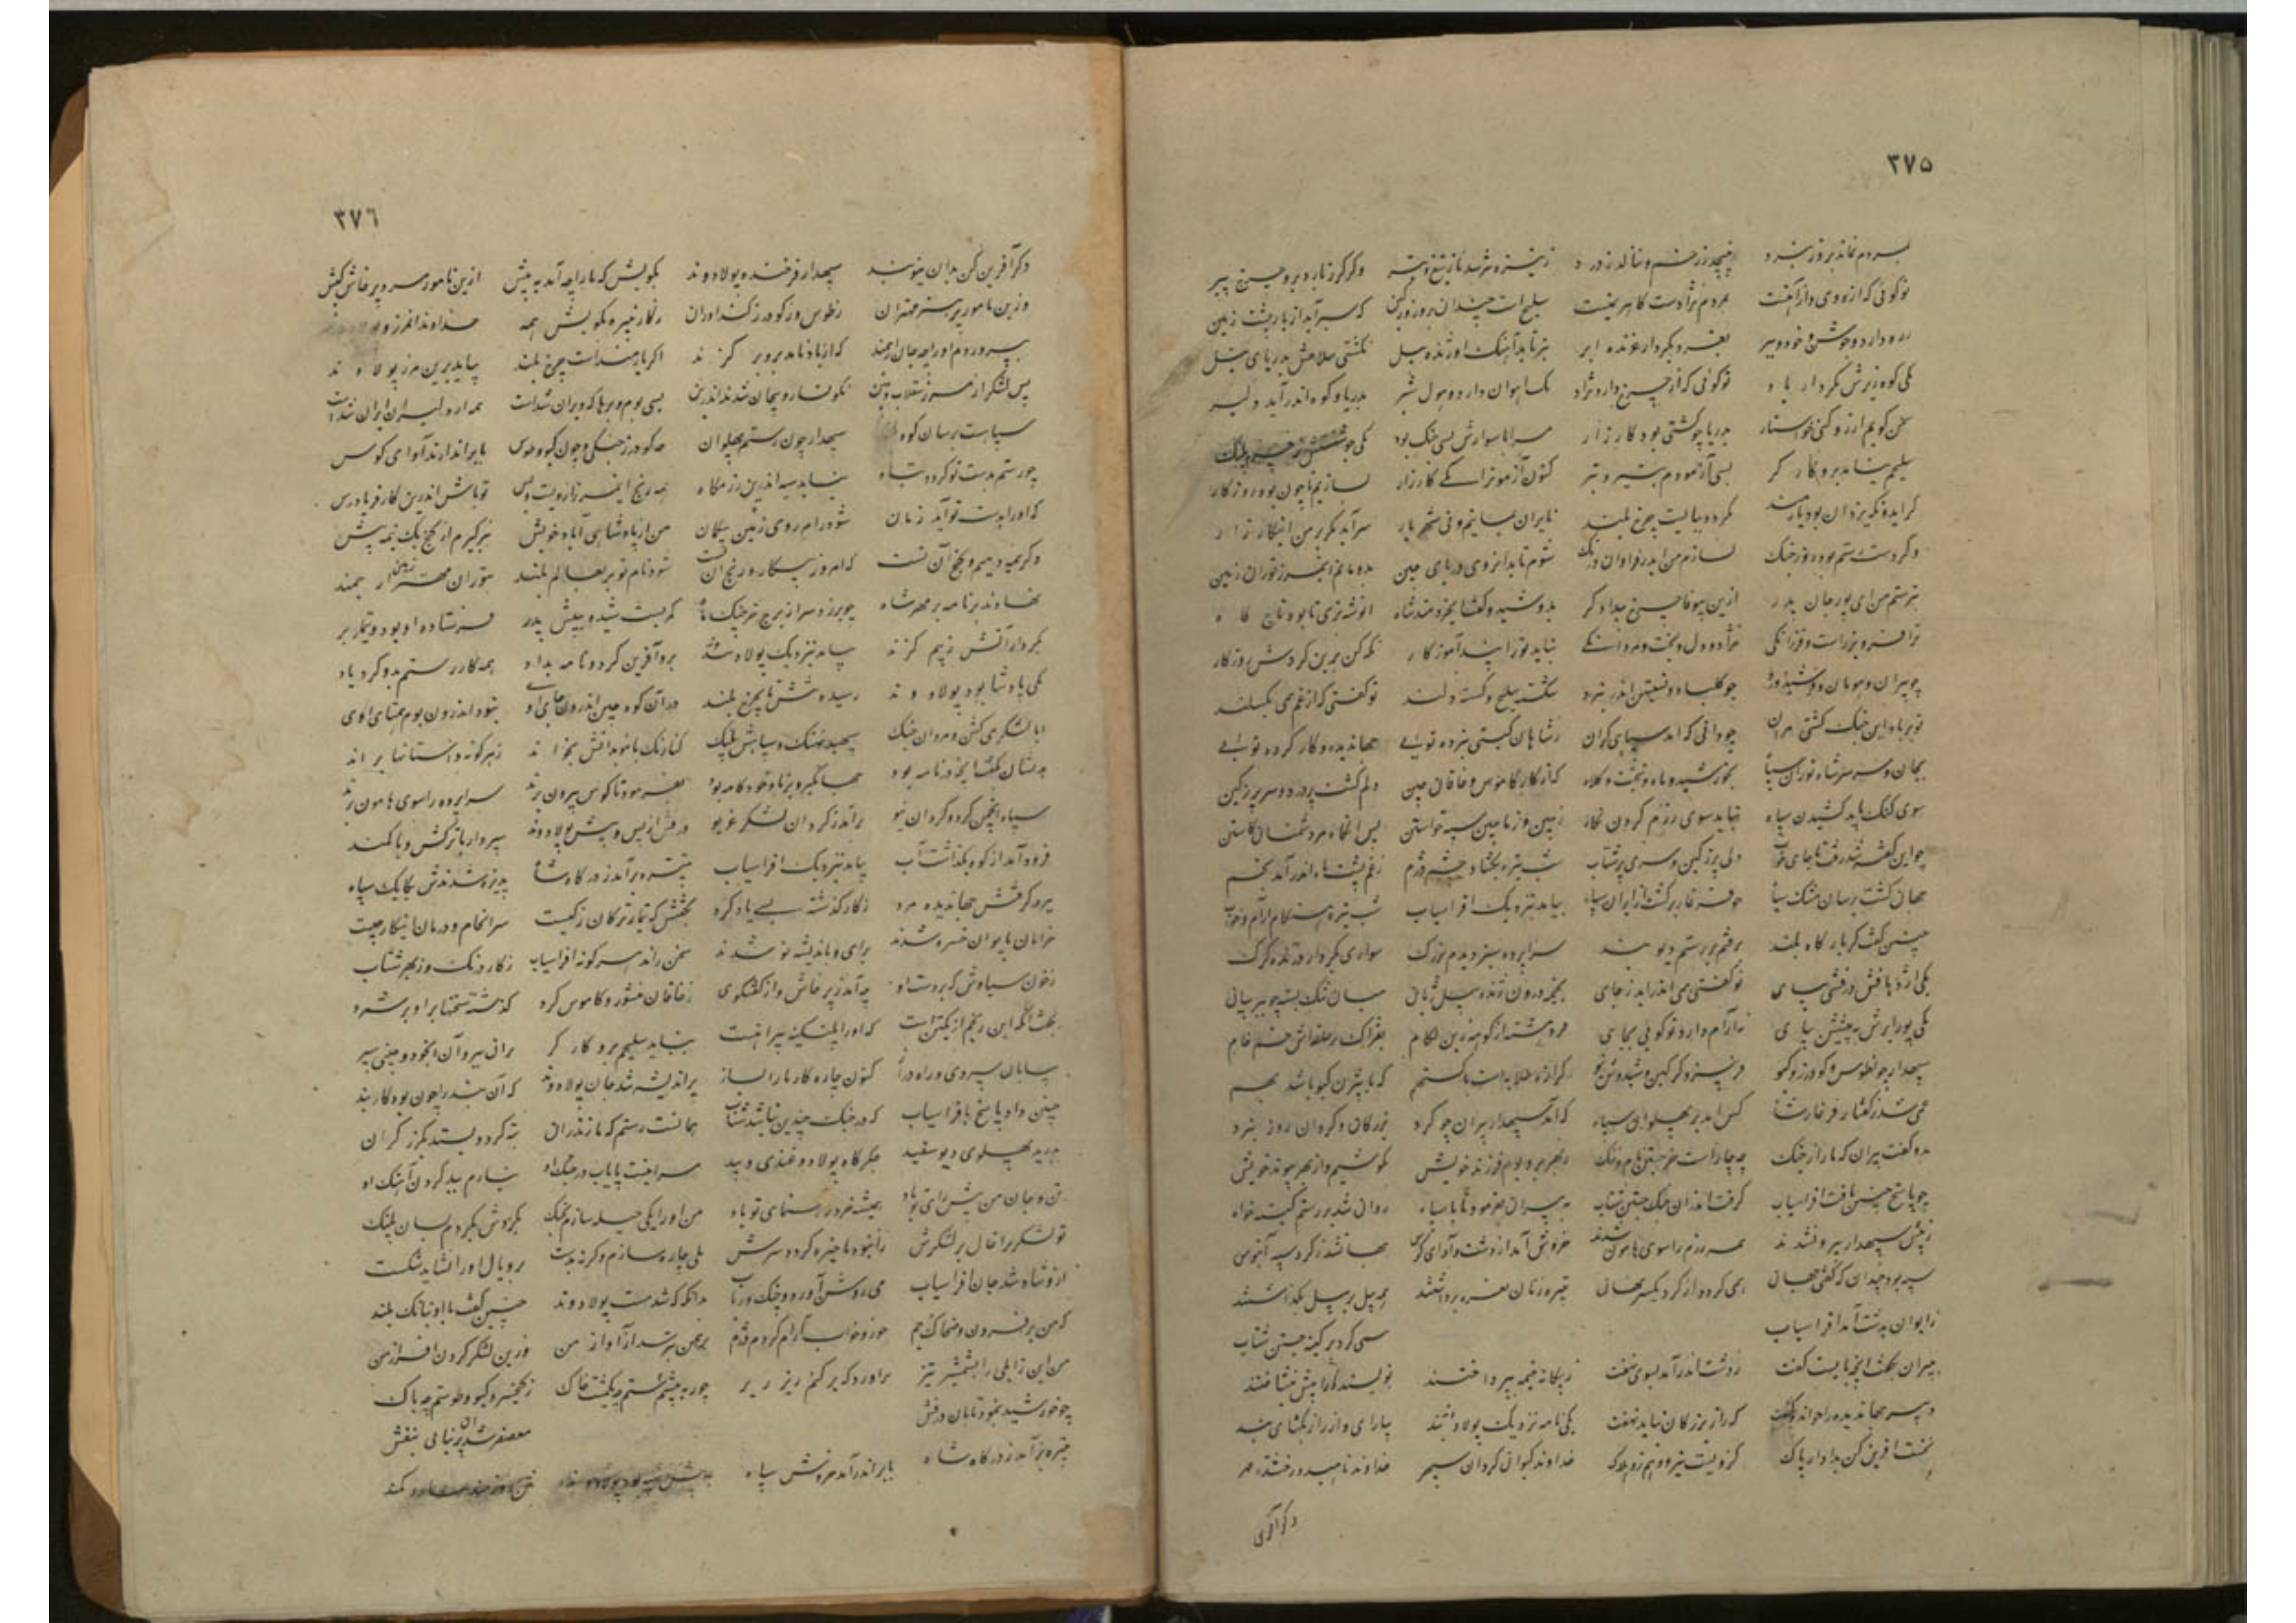 ۳۷۵
بمردم نماند بروز نبرد نپیچد ز زخم و ننالد ز درد ز نیزه نترسد نه از تیغ و تیر وگر گرز بارد برو چرخ پیر
تو گوئی که از روی وز آهنست نه مردم نژادست کاهرمنست سلیح است چندان برو روز کین که سیر آید از بار پشت زمین
زره دارد و جوشن و خود و ببر بغرد بکردار غرنده ابر نه برتابد آهنگ او ژنده پیل نه کشتی سلاحش بدریای نیل
یکی کوه زیرش بکردار باد تو گوئی که از چرخ دارد نژاد تک آهوان دارد و هول شیر بدریا و کوه اندر آید دلیر
سخن گویم ار زو کنی خواستار بدریا چو کشتی بود کارزار مرا با سوارش بسی جنگ بود یکی جوشنش ز چرم پلنگ
سلیحم نیامد برو کارگر بسی آزمودم بتیر و تبر کنون آزمون را یکی کارزار بسازیم تا چون بود روزگار
گر ایدونکه یزدان بود یارمند بگردد ببایست چرخ بلند نه ایران بمانیم و نی شهریار سر آید مگر بر من این کارزار
وگر دست رستم بود روز جنگ نسازم من ایدر فراوان درنگ شوم تا بدانروی دریای چین بدو مانم این مرز توران زمین
ازین بیوفا چرخ بیدادگر بدو شیده گفت ای خردمند شاه انوشه بزی تا بود تاج گاه
ترا فر و برزست و فرزانگی نژاد و دل و بخت و مردانگی نباید ترا پند آموزگار نگه کن بدین گردش روزگار
چو پیران و هومان و فرشیدورد چو کلباد و نستیهن اندر نبرد شکسته سلیح و گسسته دلند تو گفتی که از غم همی بگسلند
تو بر باد این جنگ کشتی مران چو دانی که آمد سپاهی گران ز شاهان گیتی گزیده توئی جهاندیده و کار کرده توئی
بجان و سر شاه توران سپاه بخورشید و ماه و بتخت و کلاه که از کار کاموس و خاقان چین دلم گشت پر درد و سر پر ز کین
سوی گنگ باید کشیدن سپاه نباید سوی رزم کردن نگاه ز چین و ز ماچین سپه خواستن پس آنگاه مر دشمنان کاستن
چو این گفته شد رفت تا جای خواب دلی پر ز کین و سری پر شتاب شب تیره بگشاد چشم دژم ز غم پشت ماه اندر آمد بخم
جهان گشت برسان مشک سیاه چو فرغار برگشت از ایران سپاه بیامد بنزدیک افراسیاب شب تیره هنگام آرام و خواب
چنین گفت کز بارگاه بلند برفتم بر رستم دیوبند سراپرده سبز دیدم بزرگ سواری بکردار درنده گرگ
یکی اژدهافش درفشی بپای تو گفتی همی اندر آید ز جای بخیمه درون ژنده پیل ژیان میان تنگ بسته چو ببر بیان
یکی بور ابرش به پیشش بپای نه آرام دارد تو گوئی بجای فرو هشته از کوهه زین لگام بفتراک بر حلقه خم خام
سپهدار چون طوس و گودرز و گیو فریبرز و گرگین و شیدوش نیو گرازه طلایه است با گستهم که با بیژن گیو باشد بهم
غمی شد ز گفتار فرغار شاه کس آمد بر پهلوان سپاه که آمد سپهدار پیران چو گرد بزرگان و گردان روز نبرد
بدو گفت پیران که ما را ز جنگ چه چاره است جز جستن نام و ننگ ز بهر بر و بوم و فرزند خویش بکوشیم و از بهر پیوند خویش
چو پاسخ چنین یافت افراسیاب گرفت اندران جنگ جستن شتاب به پیران بفرمود تا با سپاه روان شد بر رستم کینه خواه
ز پیش سپهدار بیرون شدند همه رزم را سوی هامون شدند خروش آمد از دشت و آوای کوس جهان شد ز گرد سپه آبنوس
سپه بود چندان که گفتی جهان همی گردد از گرد یکسر نهان تبیره زنان نعره برداشتند همه پیل بر پیل بگذاشتند
ز ایوان به دشت آمد افراسیاب همی کرد بر کینه جستن شتاب
به پیران بگفت آنچه بایست گفت ز دشت اندر آمد بسوی نهفت ز بیگانه خیمه بپرداختند نویسنده را پیش بنشاختند
دبیر جهاندیده را خواند و گفت که راز بزرگان نباید نهفت یکی نامه نزدیک پولادوند بیارای و از راز بگشای بند
نخست آفرین کن بدادار پاک کزویست نیرو و هم زو هلاک خداوند کیوان و گردان سپهر خداوند ناهید و رخشنده مهر
دگر آفرین
۳۷٦
دگر آفرین کن بدان بیوبند سپهدار فرخنده پولادوند بگویش که ما را چه آمد به پیش ازین نامور سرور پرخاش کیش
وزین نامور پر هنر مهتران ز طوس و ز گودرز کنداوران ز کار نبیره بگویش همه خداوند این مرز و
بپروردم او را چه جان ارجمند که از باد نامد برو بر گزند اگر یارمندست چرخ بلند بیاید برین مرز پولادوند
بس لشکر از مرز سقلاب و چین نگونسار و پیچان شدند اندرین بسی بوم و برها که ویران شدست همه از دلیران ایران شدست
سپاهست برسان کوه سپهدار چون رستم پهلوان چو گودرز جنگی و چون گیو و طوس بابر اندر آرند آوای کوس
چو رستم بدست تو گردد تباه نیاید سپه اندرین رزمگاه همه رنج این مرز ازویست و بس تو باش اندرین کار فریادرس
گر او را بدست تو آید زمان شود رام روی زمین بیگمان من از پادشاهی آباد خویش نه برگیرم از گنج یک نیمه بیش
دگر نیمه دیهیم و گنج آن تست که امروز پیکار و رنج آن تست شود نام تو بر بعالم بلند
نهادند بر نامه بر مهر شاه چو برزد سر از برج خرچنگ ماه کمر بست شیده به پیش پدر فرستاده او بود و تیماربر
بکردار آتش ز بیم گزند بیامد بنزدیک پولادوند برو آفرین کرد و نامه بداد همه کار رستم بدو کرد یاد
یکی پادشا بود پولادوند رسیده ششش تا بچرخ بلند در آن کوه چین اندرون جای او نبود اندران بوم همتای اوی
ابا لشکری گشن و مردان جنگ سپهبد نهنگ و سپاهش پلنگ کنارنگ با موبدانش بخواند ز هر گونه داستانها براند
بدیشان بگفت آنچه در نامه بود جهانگیر برنا و خودکامه بود بفرمود تا کوس بیرون زدند سراپرده را سوی هامون زدند
سپاه انجمن کرد و گردان نیو برآمد ز گردان لشکر غریو درفش از پس و پیش پولادوند سپردار با ترکش و با کمند
فرود آمد از کوه بگذاشت آب بیامد بنزدیک افراسیاب تبیره برآمد ز درگاه شاه پذیره شدندش یکایک سپاه
ببر در گرفتش جهاندیده مرد ز کار گذشته بسی یاد کرد بگفتش که تیمار ترکان ز کیست سرانجام و درمان این کار چیست
خرامان بایوان خسرو شدند برای و باندیشه نو شدند سخن راند هر گونه افراسیاب ز کار درنگ و ز بهر شتاب
ز خون سیاوش که بر دست او چه آمد ز پرخاش وز گفتگوی ز خاقان و منشور و کاموس کرد گذشته سخنها برو بر شمرد
بگفت آنکه این رنجم از یک تن است که او را پلنگینه پیراهنست نیاید سلیحم برو کارگر بران ببر و آن خود و چینی سپر
بیابان سپردی و راه دراز کنون چاره کار ما را بساز پر اندیشه شد جان پولادوند که آن بند را چون بود کاربند
چنین داد پاسخ بافراسیاب که در جنگ چندین نباید شتاب همانست رستم که مازندران تبه کرد و بستد بگرز گران
بدرید پهلوی دیو سپید جگرگاه پولاد غندی و بید مرا نیست پایاب در جنگ او نیارم ببد کردن آهنگ او
تن و جان من پیش رای تو باد همیشه خرد رهنمای تو باد من او را یکی حیله سازم بجنگ بگردش بگردم بسان پلنگ
تو لشکر بر آغال بر لشکرش بانبوه تا خیره گردد سرش یکی چاره سازم وگرنه بدست بر و یال او را نشاید شکست
ازو شاد شد جان افراسیاب می روشن آورد و چنگ و رباب بدانگه که شد مست پولادوند چنین گفت با او ببانگ بلند
که من بر فریدون و ضحاک و جم خور و خواب و آرام کردم دژم برهمن بترسد ز آواز من وزین لشکر گردن افراز من
من این زابلی را بشمشیر تیز برآوردگه بر کنم ریز ریز چو رستم به پیشم چه یکمشت خاک ز کیخسرو و گیو و طوسم چه باک
چو خورشید بنمود تابان درفش معصفر شد آن پرنیان بنفش
تبیره برآمد ز درگاه شاه بابر اندر آمد خروش سپاه به پیش سپه بود پولادوند